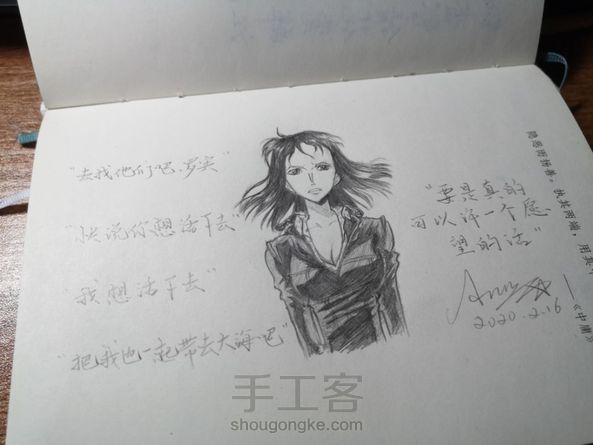 "去找他们吧，罗宾"
"快说你想活下去"
"我想活下去"
"把我也一起带去大海吧"
"要是真的
可以许一个愿
望的话"
2020.2.16
隐恶而扬善，执其两端，用其
《中庸》
手工客
shougongke.com